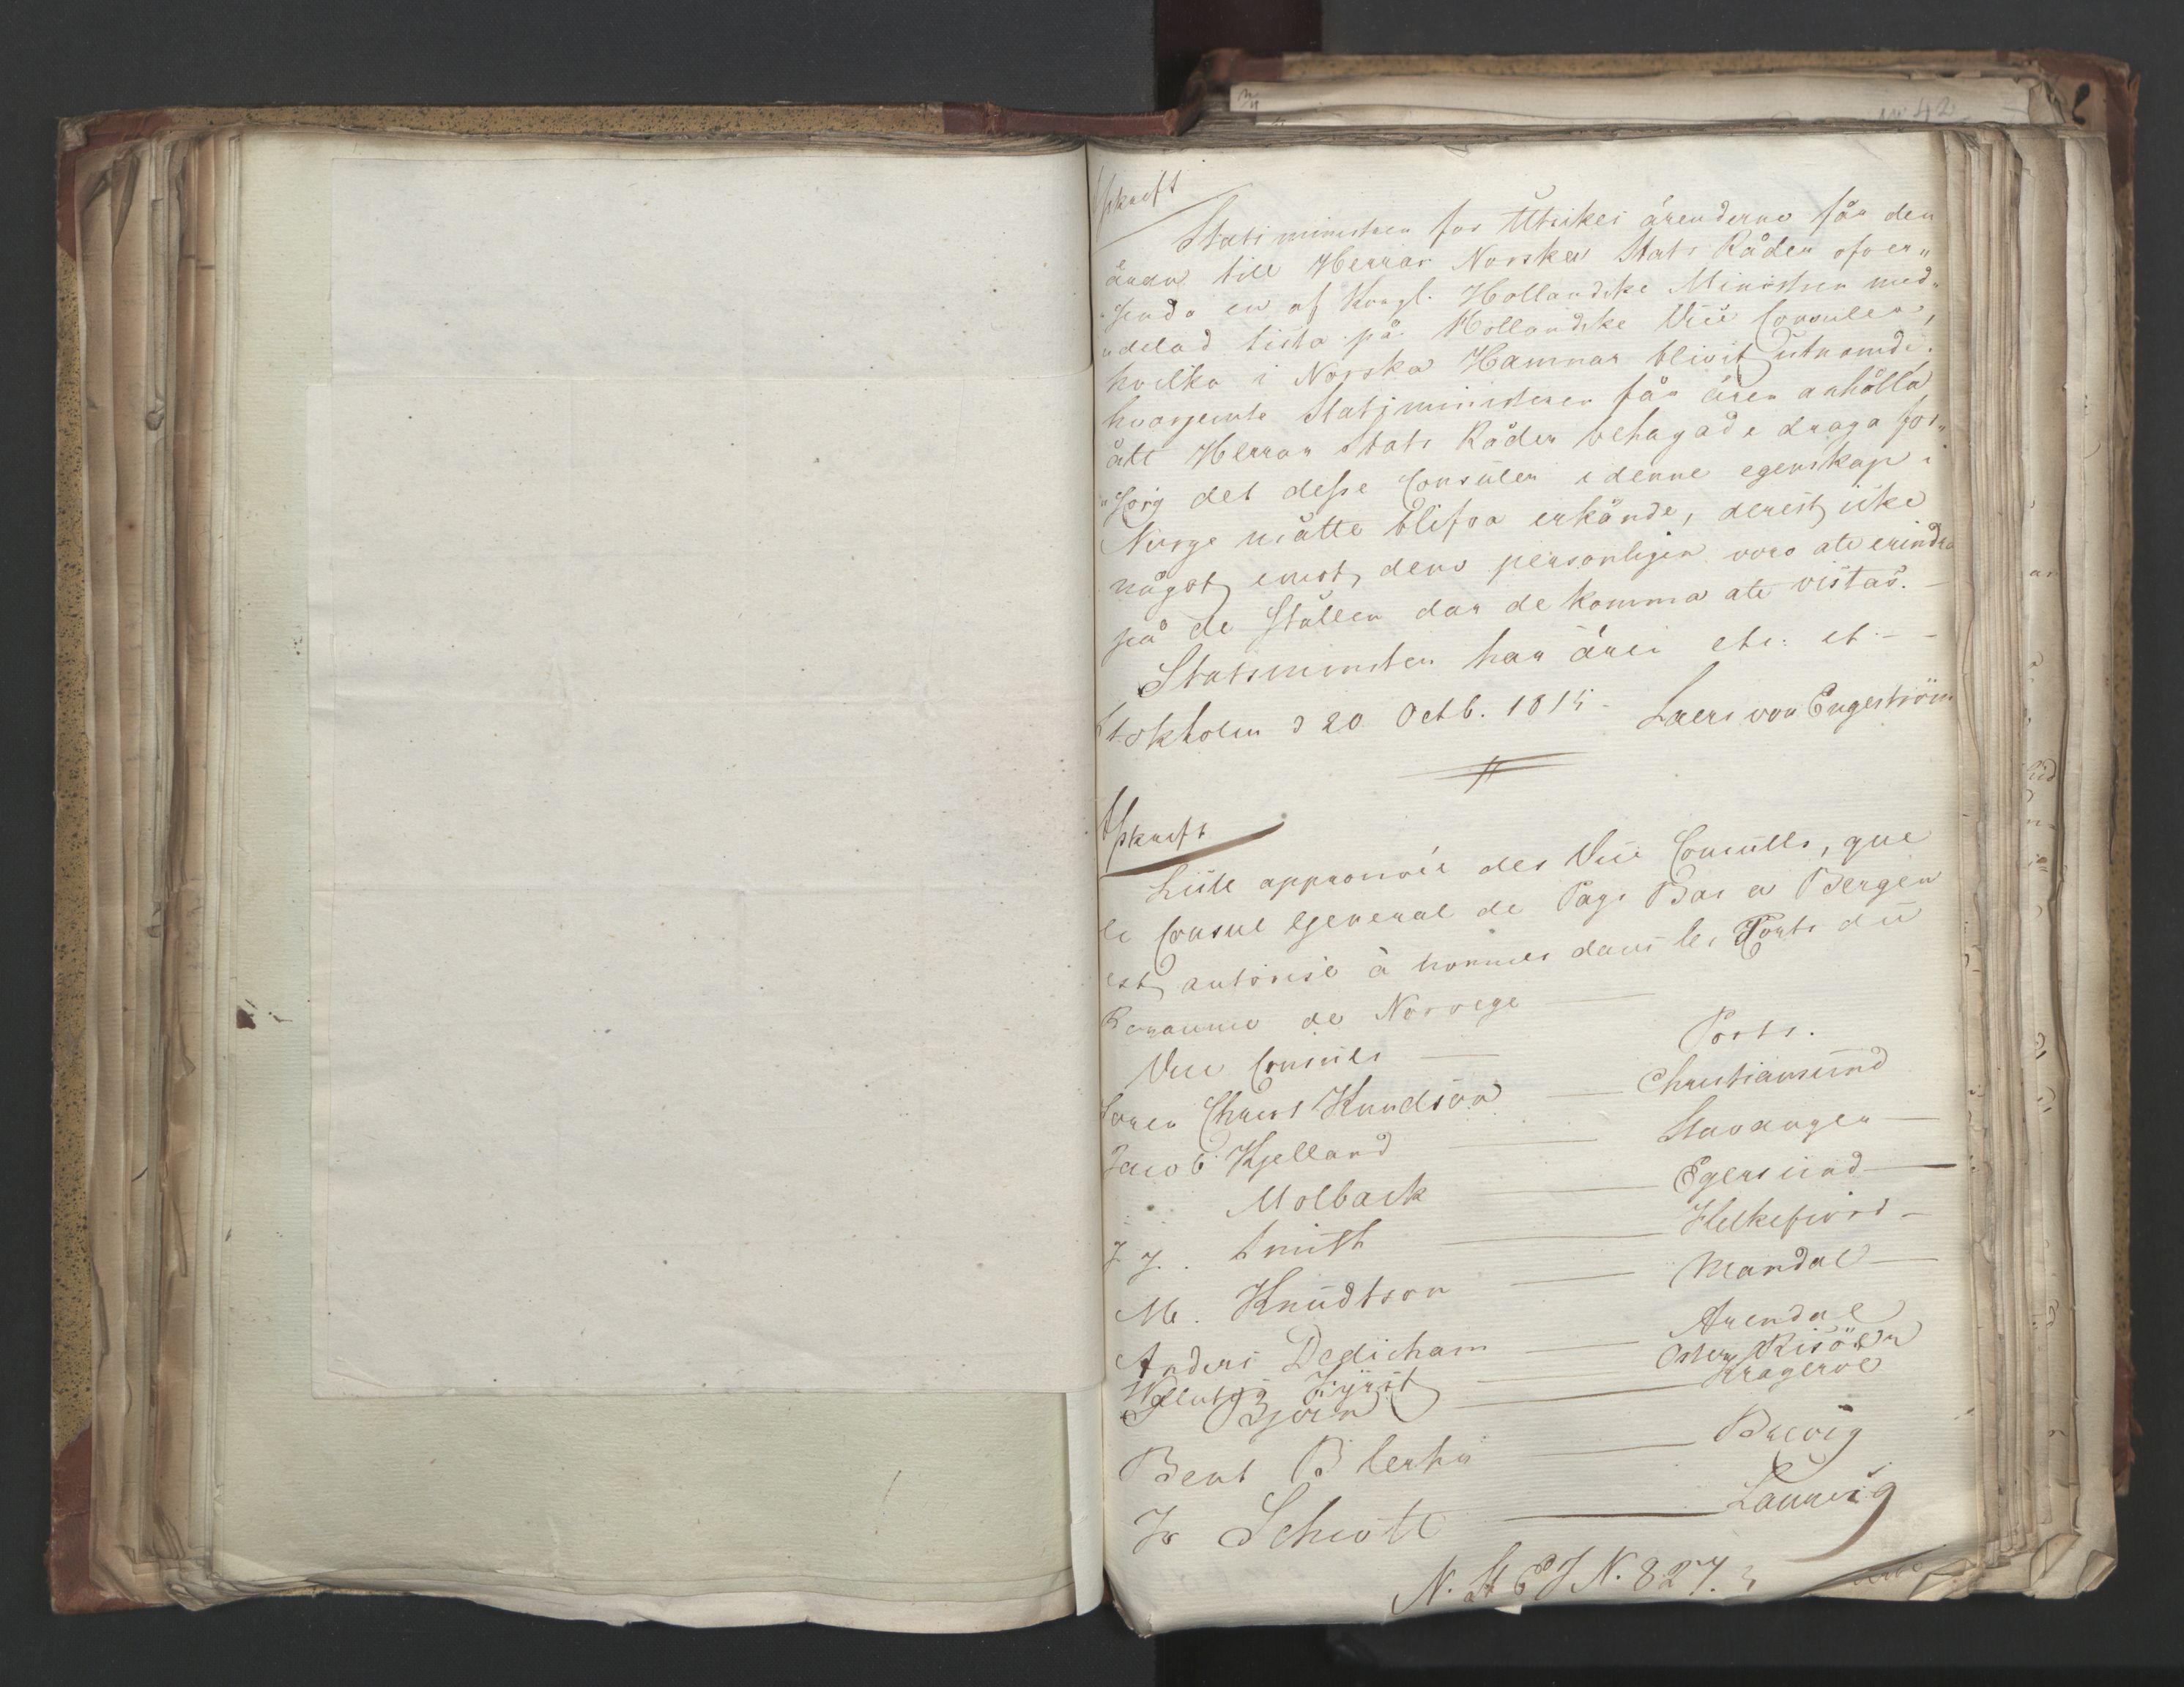 Afskrift
Statsministern för Utrikes ärenderne får den
äran till Herrar Norska Stats Råden öfver„
„sända en af Kongl. Hollandske Ministren med„
„delad lista på Hollandske Vice Consuler,
hvilka i Norska Hamnar blivit utnämde;
hvarjemte Statsministeren får ären anhålla
att Herrar Stats Råden behagade draga för„
„sorg det desse Consuler i denne egenskap i
Norge måtte blifva erkände, derest icke
något emot dens personligen vore att erindra
på de ställen dar de komma att vistas. —
Statsministern har ären etc: et - -
Stokholm d 20 Octb. 1815 - Laers von Engeström
Afskrift
Liste approuvée des Vice Consulls, que
le Consul General de Pays Bas a Bergen
est autorisé à nommer dans les Ports du
Royaume de Norvege —
Vice Consuls — Ports.
Søren Christ Knudson — Christiansund
Jacob Kjelland — Stavanger —
Molback — Egersund —
J J. Smith — Flekkefiord —
M. Knudtson — Mandal —
Anders Dedicham — Arendal
Fürst — Oster Risöer
Björn — Krageröe
Bent Blehr — Brevig
Jo Schiøtt — Laurvig
N. St E J N. 827.
42